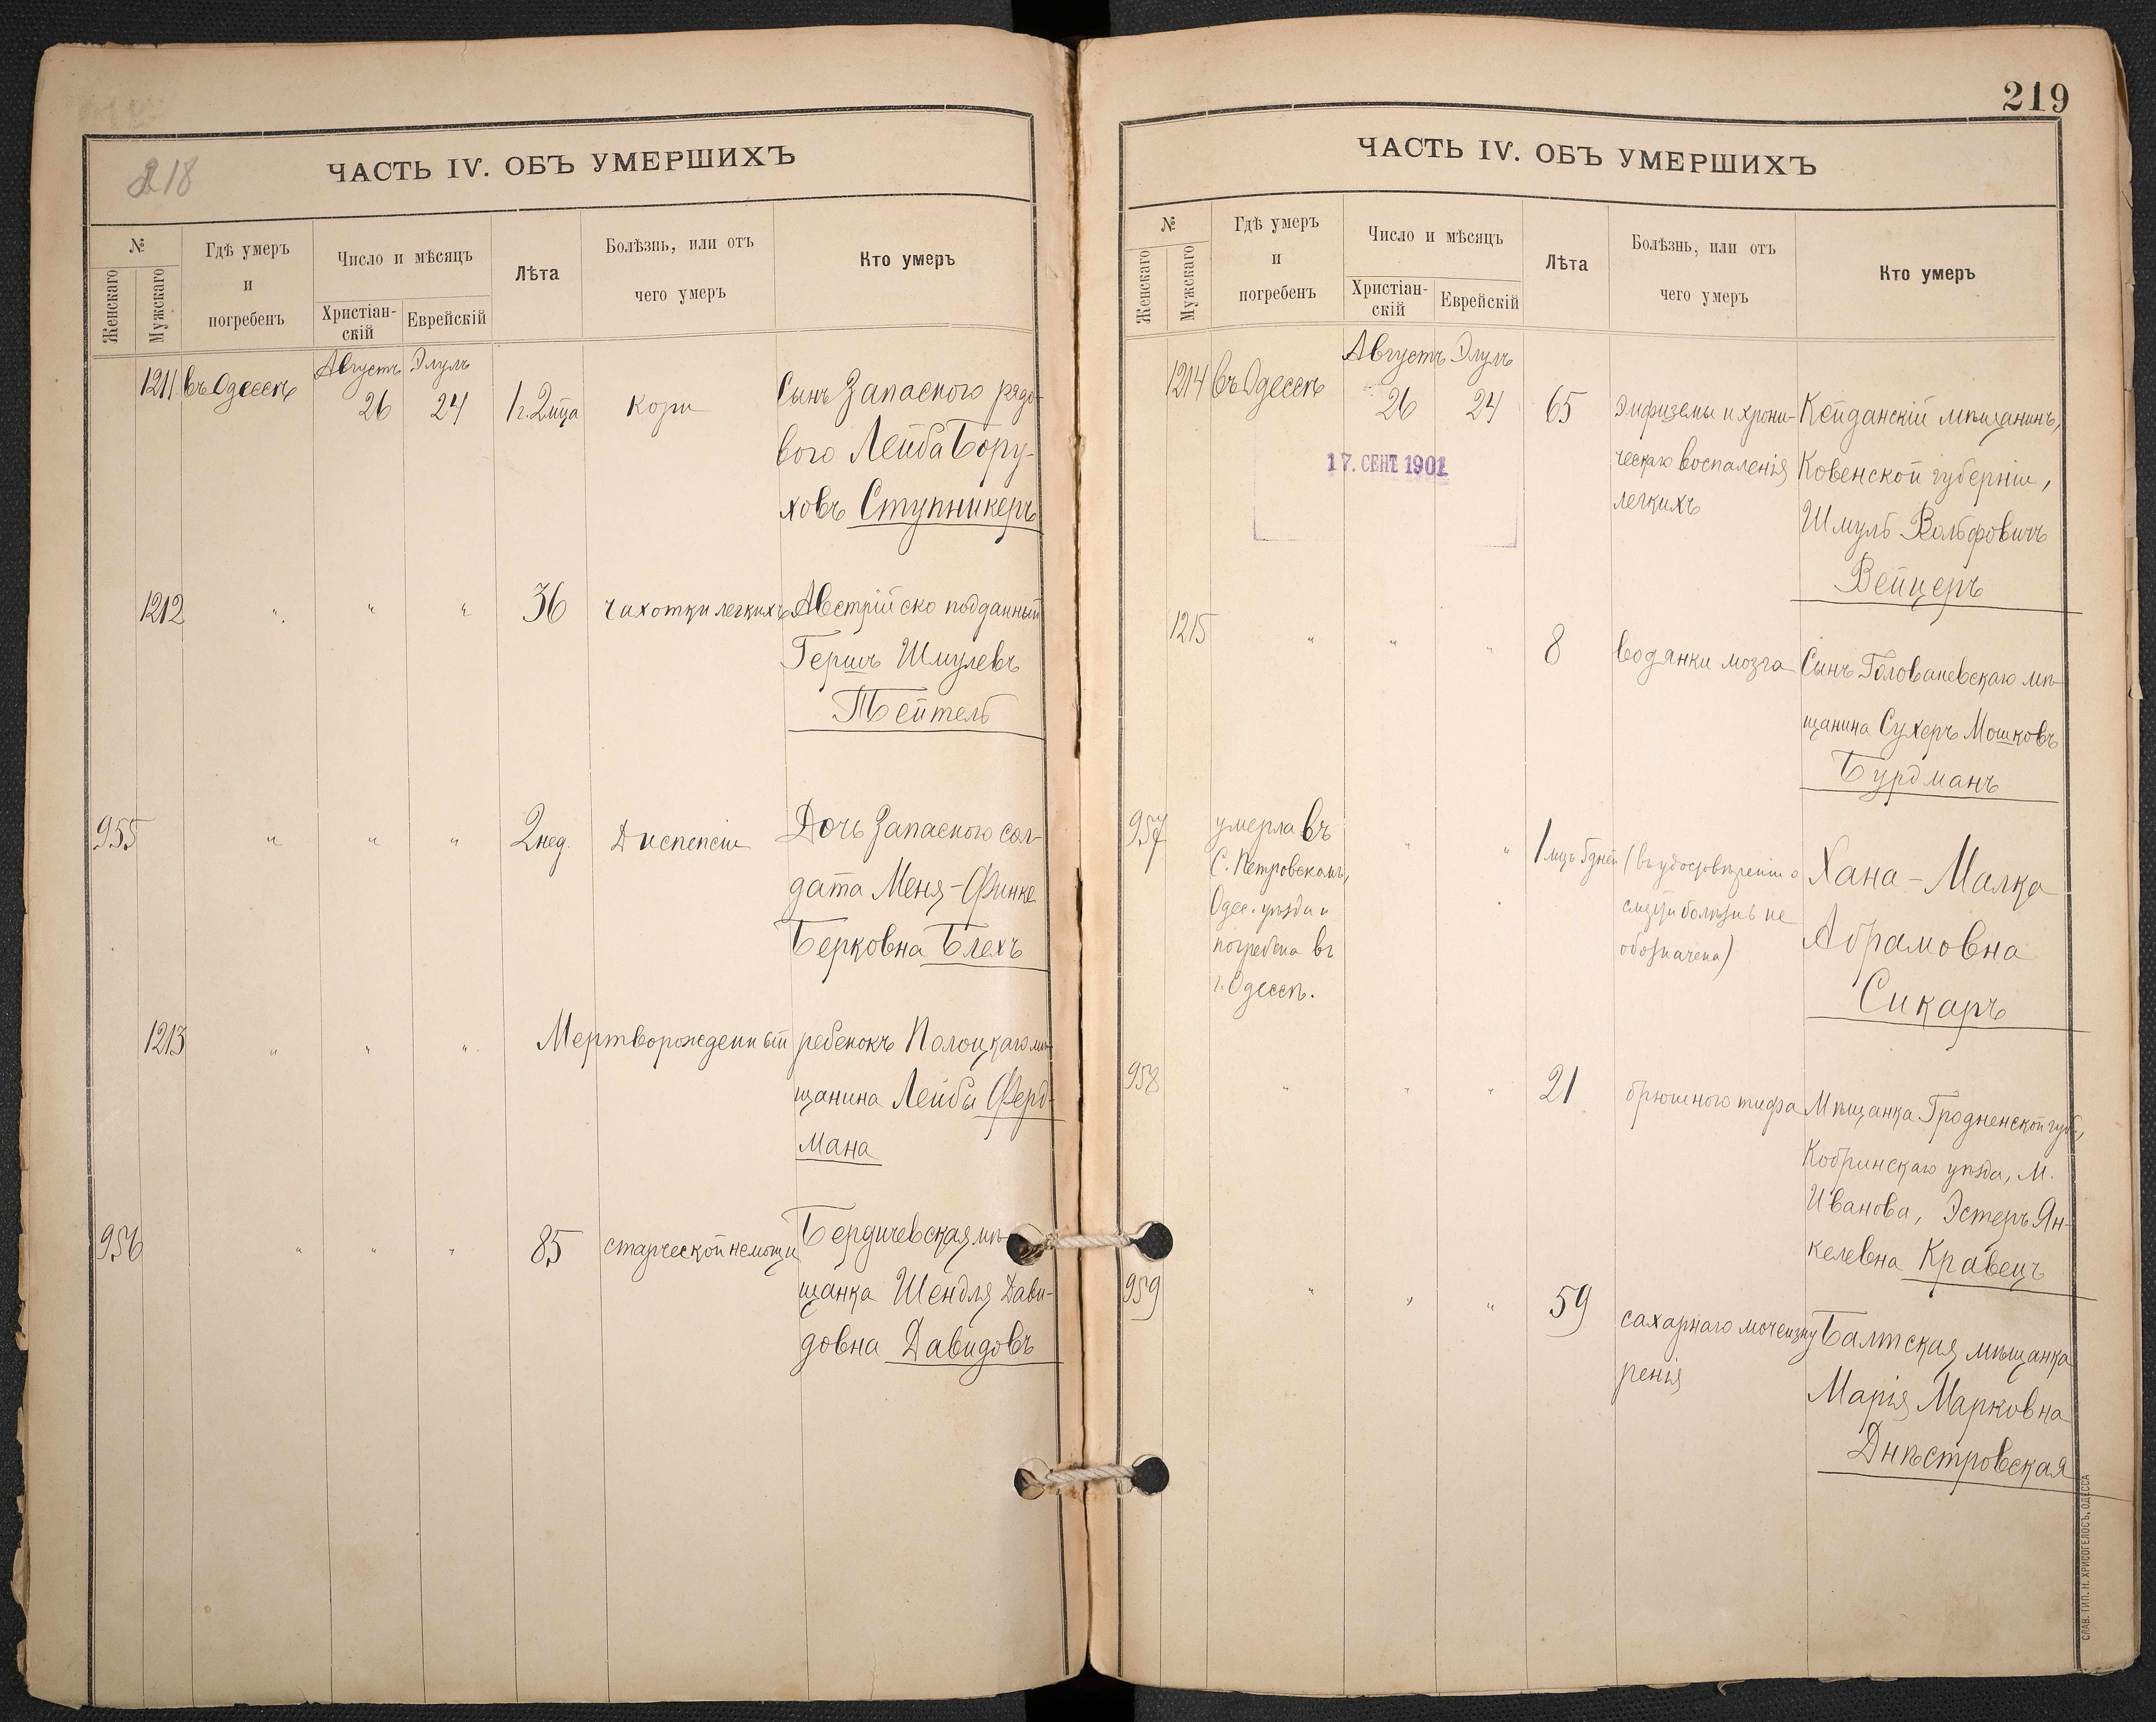 218
ЧАСТЬ IV. ОБЪ УМЕРШИХЪ
№
Женскаго
Мужскаго
Гдѣ умеръ
и
погребенъ
Число и мѣсяцъ
Христіан-
скій
Еврейскій
Лѣта
Болѣзнь, или отъ
чего умеръ
Кто умеръ
Августъ Элулъ
1211 въ Одессѣ 26 24 1 г. 2 мца кори
Сынъ Запасного рядо-
вого Лейба Бору-
ховъ Ступникеръ
1212 " " " 36 чахотки легкихъ Австрійско подданный
Гершъ Шмулевъ
Тейтель
955 " " " 2 нед. Диспепсіи
Дочь Запасного сол-
дата Меня-Финке
Берковна Блехъ
1213 " " " Мертворожденный ребенокъ Полоцкаго мѣ-
щанина Лейбы Ферд-
мана
956 " " " 85 старческой немощи Бердичевская мѣ-
щанка Шендля Дави-
довна Давидовъ
219
ЧАСТЬ IV. ОБЪ УМЕРШИХЪ
№
Женскаго
Мужскаго
Гдѣ умеръ
и
погребенъ
Число и мѣсяцъ
Христіан-
скій
Еврейскій
Лѣта
Болѣзнь, или отъ
чего умеръ
Кто умеръ
Августъ Элулъ
1214 въ Одессѣ 26 24 65
эмфиземы и хрони-
ческаго воспаленія
легкихъ
Кейданскій мѣщанинъ,
Ковенской губерніи,
Шмуль Вольфовичъ
Вейцеръ
17. СЕНТ 1901
1215 " " " 8 водянки мозга
Сынъ Голованевскаго мѣ-
щанина Сухеръ Мошковъ
Бурдманъ
957
умерла въ
С. Петровскомъ,
Одес. уѣзда и
погребена въ
г. Одессѣ.
" " 1 мцъ 5 дней
(въ удостовѣреніи о
смерти болѣзнь не
обозначена)
Хана-Малка
Абрамовна
Сикаръ
958 " " " 21 брюшного тифа
Мѣщанка Гродненской губ.,
Кобринскаго уѣзда, м.
Иванова, Эстеръ Ян-
келевна Кравецъ
959 " " " 59
сахарнаго мочеизну
ренія
Балтская мѣщанка
Марія Марковна
Днѣстровская
СЛАВ. ТИП. Н. ХРИСОГЕЛОСЪ, ОДЕССА